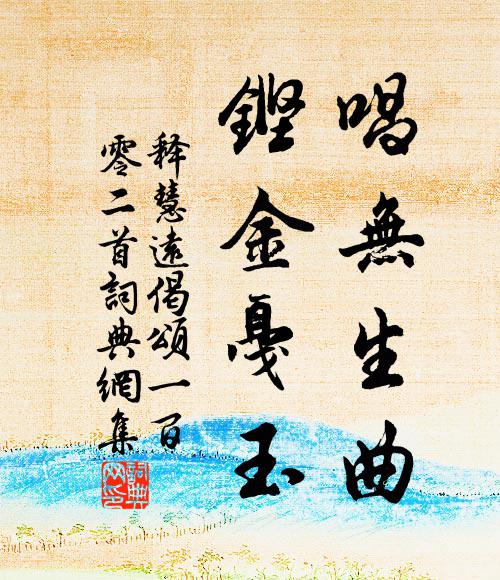 唱無生曲
鏗金戛玉
釋慧遠偈頌一百
零二首詞典網集